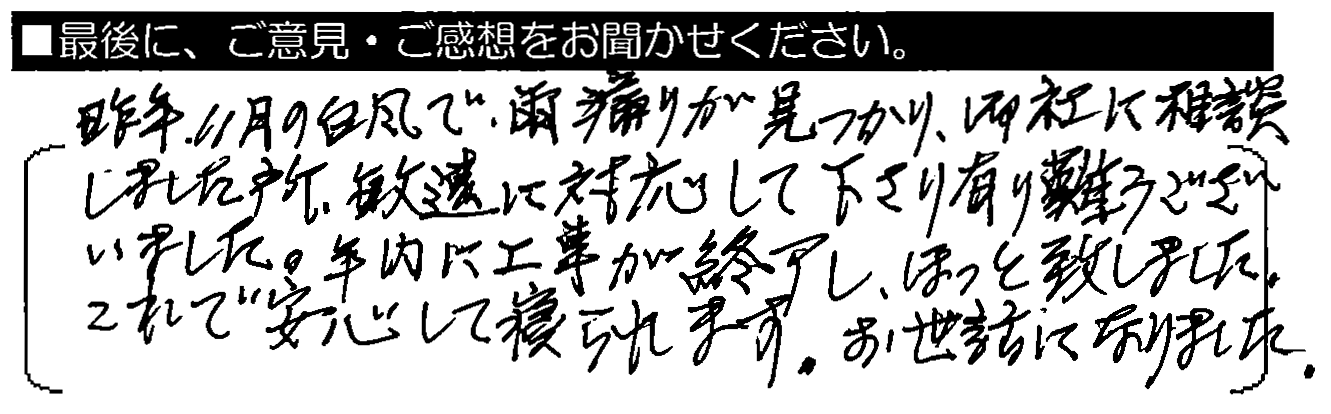 ■最後に、ご意見・ご感想をお聞かせください。
昨年、11月の台風で、雨漏りが見つかり、御社に相談
しました所、敏速に対応して下さり有り難うござ
いました。年内に工事が終了し、ほっと致しました。
これで安心して寝られます。お世話になりました。